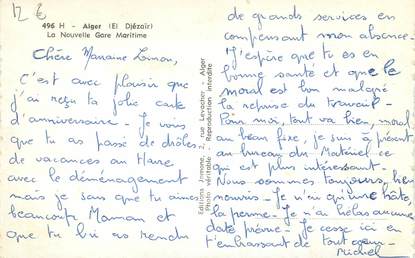 12 €
496 H - Alger (El Djézaïr)
La Nouvelle Gare Maritime
Chère Marraine
C'est avec plaisir que
j'ai reçu ta jolie carte
d'anniversaire. Je vois
que tu as passé de drôles
de vacances au Havre
avec le déménagement
mais je sais que tu aimes
beaucoup Maman et
que tu lui as rendu
Editions Jomone, 2, rue Levacher - Alger
Photo véritable - Reproduction interdite
de grands services en
compensant mon absence.
J'espère que tu es en
bonne santé et que le
moral est bon malgré
la reprise du travail.
Pour moi, tout va bien, moral
au beau fixe, je suis à présent
au bureau du Matériel, ce
qui est plus intéressant.
Nous sommes toujours bien
nourris. Je n'ai qu'une hâte,
la perme. Je n'ai hélas aucune
date prévue. Je cesse ici en
t'embrassant de tout cœur.
Michel